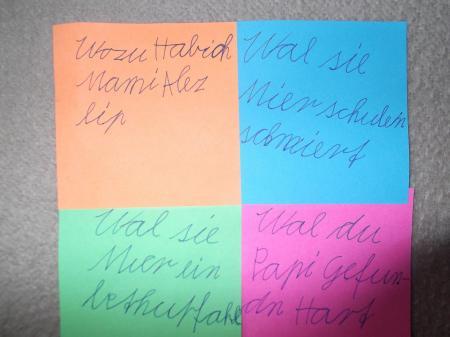 Wozu Habich
Mami Alez
lip
Wal sie
Mier schulein
schmiert
Wal sie
Mier ein
Wal du
Papi Gefun-
dn Hart